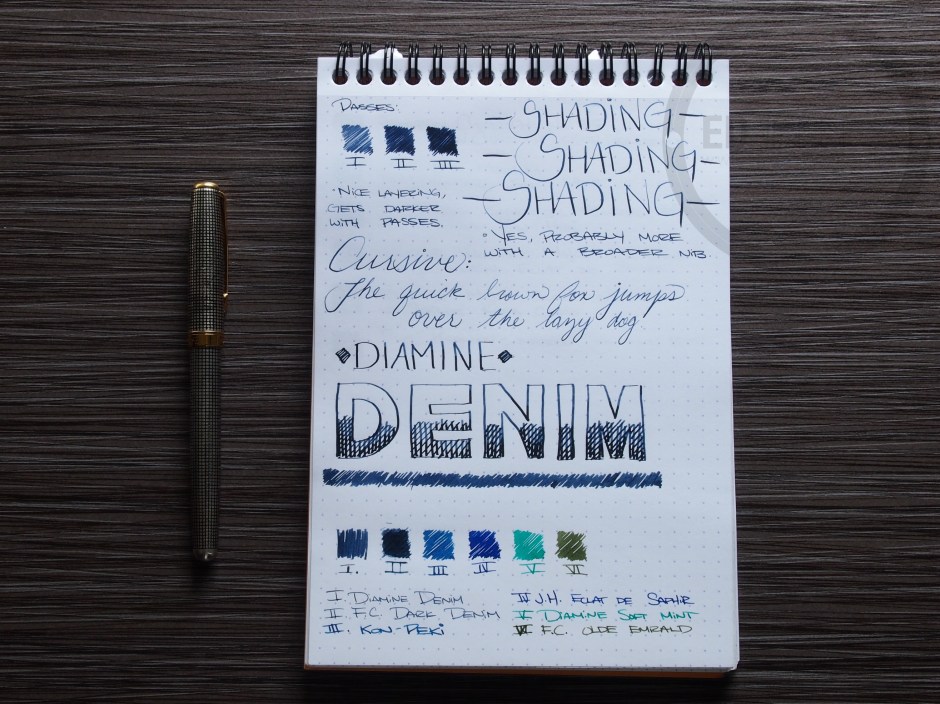 PASSES:
I II III
• NICE LAYERING,
GETS DARKER
WITH PASSES.
– SHADING –
– SHADING –
– SHADING –
• YES, PROBABLY MORE
WITH A BROADER NIB.
Cursive:
The quick brown fox jumps
over the lazy dog
DIAMINE
DENIM
I. II III IV V VI
I. DIAMINE DENIM
II F.C. DARK DENIM
III. KON-PEKI
IV J.H. ECLAT DE SAPHIR
V DIAMINE SOFT MINT
VI F.C. OLDE EMRALD